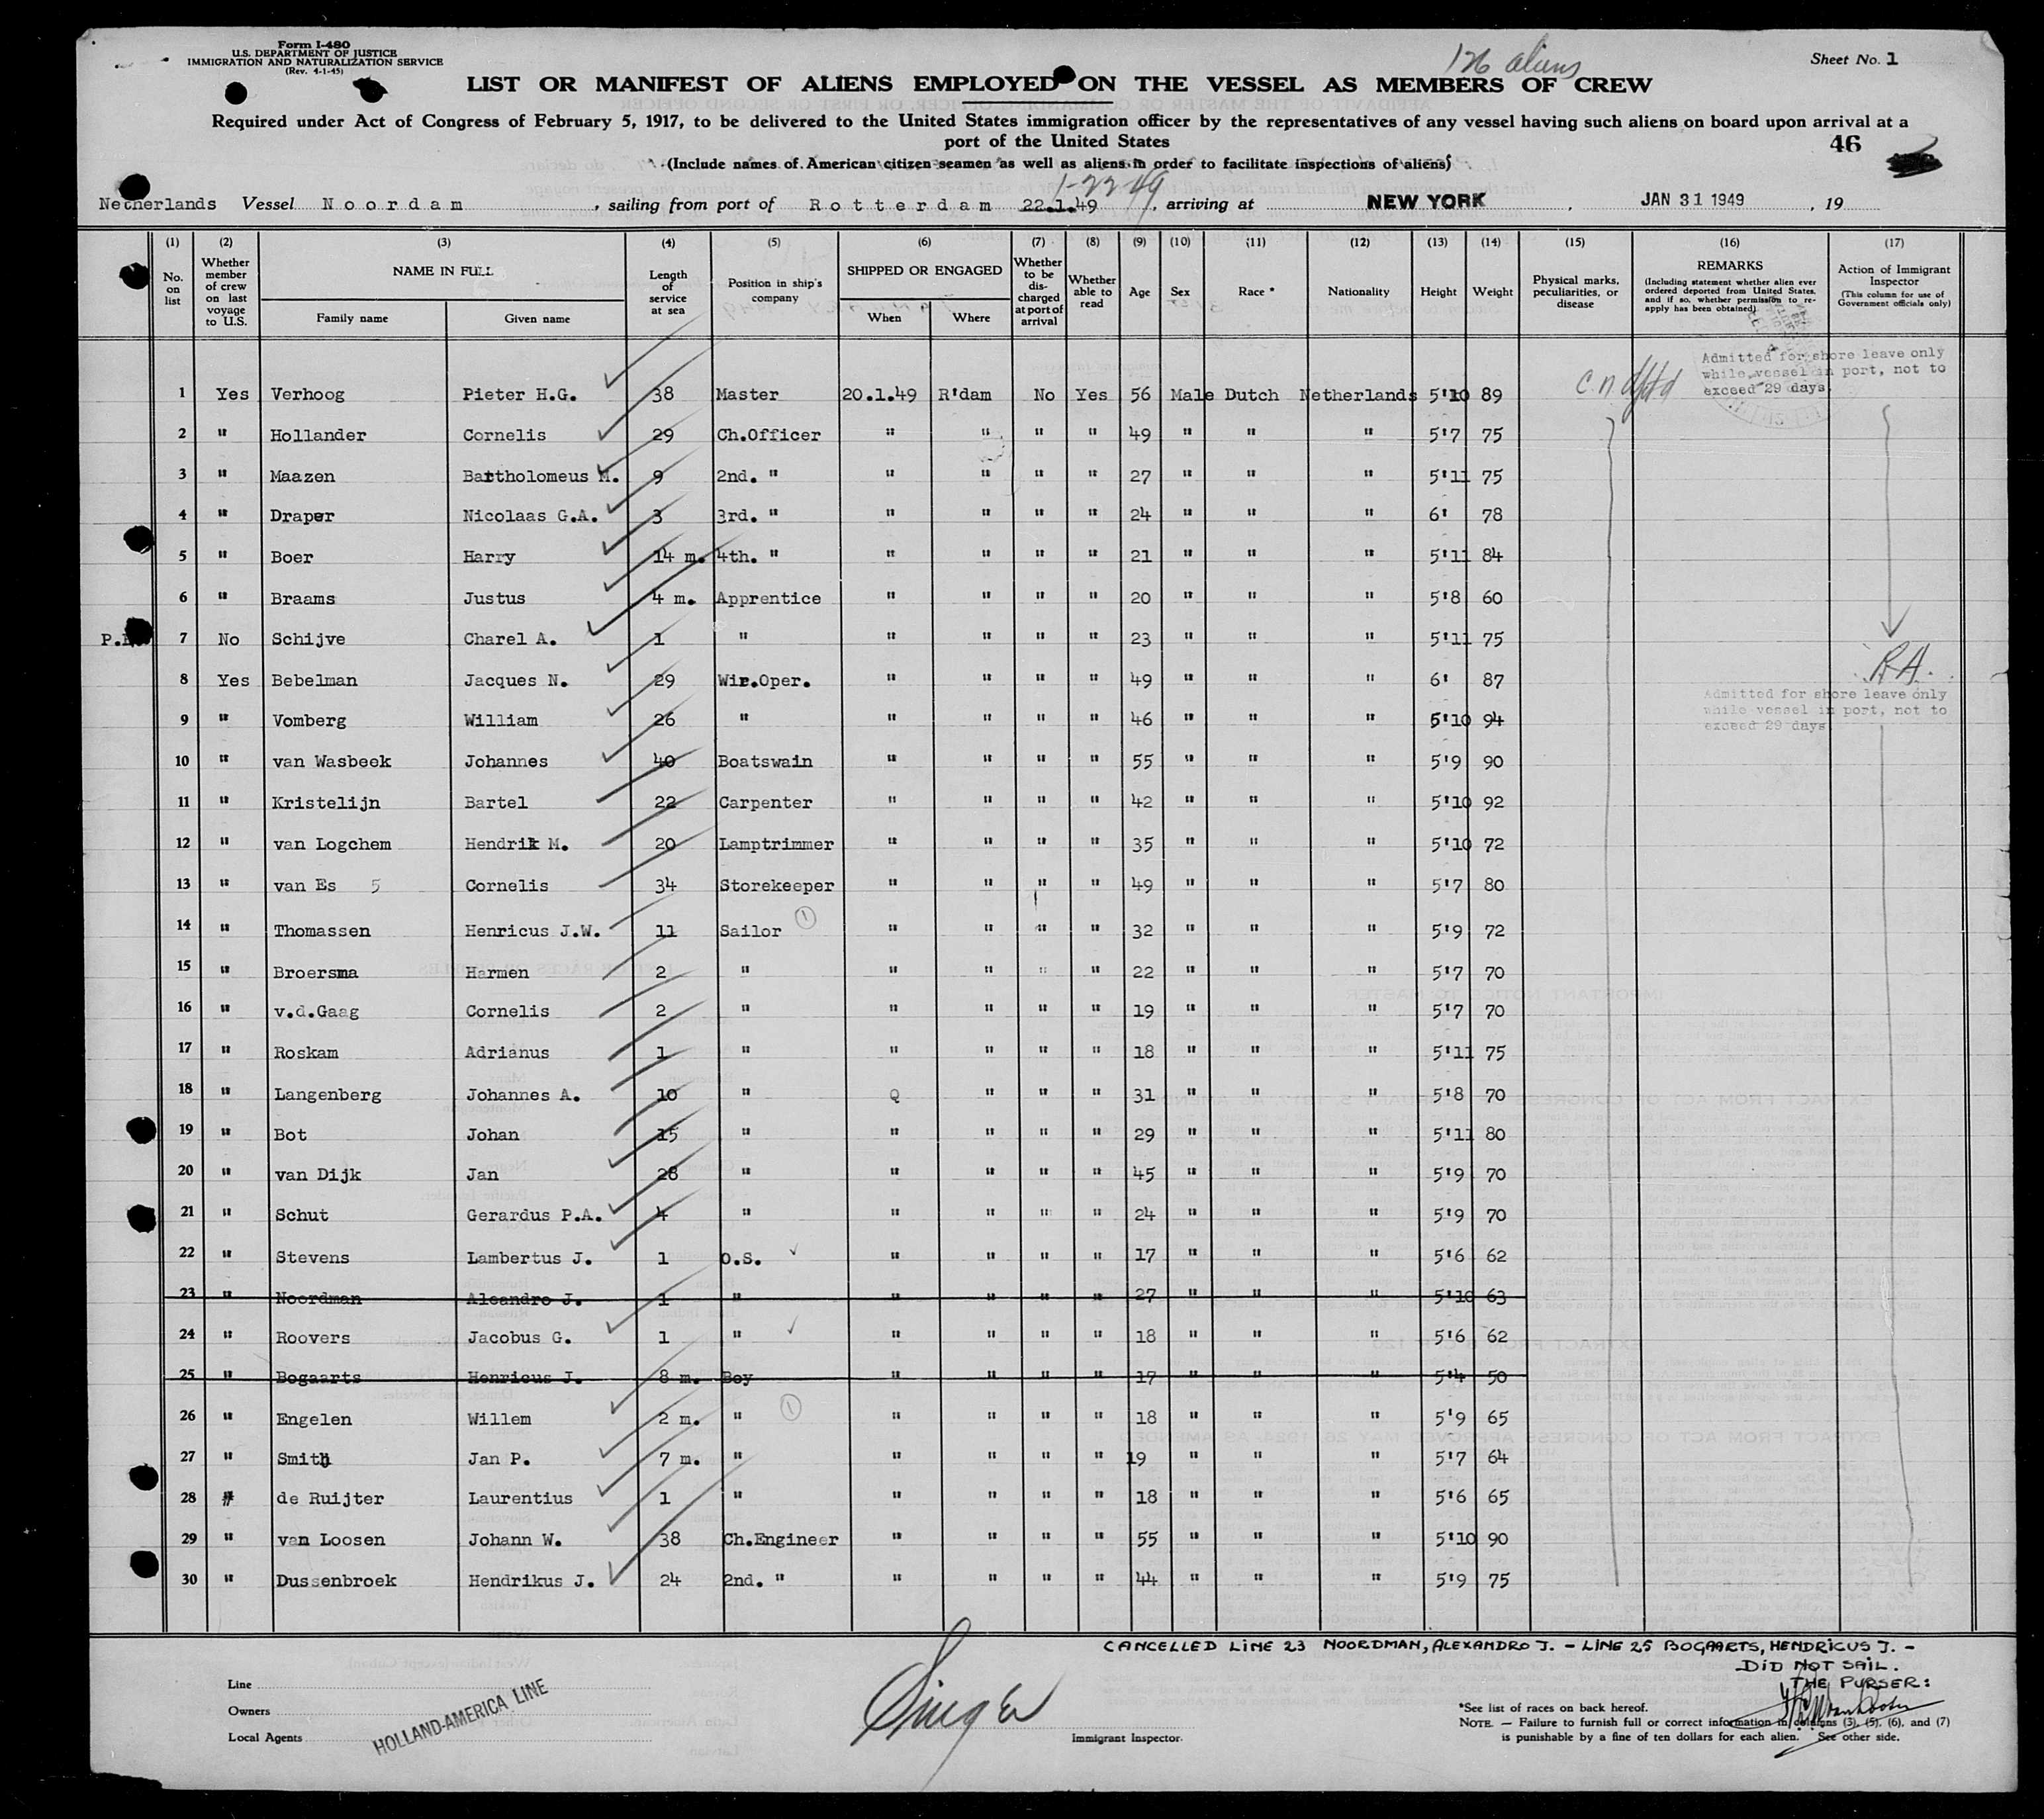 Form I-480
U.S. DEPARTMENT OF JUSTICE
IMMIGRATION AND NATURALIZATION SERVICE
(Rev. 4-1-45)
126 aliens
Sheet No. 1
LIST OR MANIFEST OF ALIENS EMPLOYED ON THE VESSEL AS MEMBERS OF CREW
Required under Act of Congress of February 5, 1917, to be delivered to the United States immigration officer by the representatives of any vessel having such aliens on board upon arrival at a
port of the United States
46
(Include names of American citizen seamen as well as aliens in order to facilitate inspections of aliens)
1-22-49
Netherlands Vessel Noordam, sailing from port of Rotterdam 22.1.49, arriving at NEW YORK, JAN 31 1949, 19
(1) No. on list (2) Whether member of crew on last voyage to U.S. (3) NAME IN FULL Family name Given name (4) Length of service at sea (5) Position in ship's company (6) SHIPPED OR ENGAGED When Where (7) Whether to be discharged at port of arrival (8) Whether able to read (9) Age (10) Sex (11) Race * (12) Nationality (13) Height (14) Weight (15) Physical marks, peculiarities, or disease (16) REMARKS (Including statement whether alien ever ordered deported from United States, and if so, whether permission to reapply has been obtained) (17) Action of Immigrant Inspector (This column for use of Government officials only)
Admitted for shore leave only
while vessel in port, not to
exceed 29 days.
1 Yes Verhoog Pieter H.G. 38 Master 20.1.49 R'dam No Yes 56 Male Dutch Netherlands 5'10 89
2 " Hollander Cornelis 29 Ch.Officer " " " " 49 " " " 5'7 75
3 " Maazen Bartholomeus M. 9 2nd. " " " " " 27 " " " 5'11 75
4 " Draper Nicolaas G.A. 3 3rd. " " " " " 24 " " " 6' 78
5 " Boer Harry 14 m. 4th. " " " " " 21 " " " 5'11 84
6 " Braams Justus 4 m. Apprentice " " " " 20 " " " 5'8 60
7 No Schijve Charel A. 1 " " " " " 23 " " " 5'11 75
8 Yes Bebelman Jacques N. 29 Wir.Oper. " " " " 49 " " " 6' 87 R.H.
Admitted for shore leave only
while vessel in port, not to
exceed 29 days
9 " Vomberg William 26 " " " " " 46 " " " 5'10 94
10 " van Wasbeek Johannes 40 Boatswain " " " " 55 " " " 5'9 90
11 " Kristelijn Bartel 22 Carpenter " " " " 42 " " " 5'10 92
12 " van Logchem Hendrik M. 20 Lamptrimmer " " " " 35 " " " 5'10 72
13 " van Es 5 Cornelis 34 Storekeeper " " " " 49 " " " 5'7 80
14 " Thomassen Henricus J.W. 11 Sailor 1 " " " " 32 " " " 5'9 72
15 " Broersma Harmen 2 " " " " " 22 " " " 5'7 70
16 " v.d.Gaag Cornelis 2 " " " " " 19 " " " 5'7 70
17 " Roskam Adrianus 1 " " " " " 18 " " " 5'11 75
18 " Langenberg Johannes A. 10 " Q " " " 31 " " " 5'8 70
19 " Bot Johan 15 " " " " " 29 " " " 5'11 80
20 " van Dijk Jan 28 " " " " " 45 " " " 5'9 70
21 " Schut Gerardus P.A. 4 " " " " " 24 " " " 5'9 70
22 " Stevens Lambertus J. 1 O.S. " " " " 17 " " " 5'6 62
23 " Noordman Aleandro J. 1 " " " " " 27 " " " 5'10 63
24 " Roovers Jacobus G. 1 " " " " " 18 " " " 5'6 62
25 " Bogaarts Henricus J. 8 m. Boy " " " " 17 " " " 5'4 50
26 " Engelen Willem 2 m. " 1 " " " " 18 " " " 5'9 65
27 " Smith Jan P. 7 m. " " " " " 19 " " " 5'7 64
28 " de Ruijter Laurentius 1 " " " " " 18 " " " 5'6 65
29 " van Loosen Johann W. 38 Ch.Engineer " " " " 55 " " " 5'10 90
30 " Dussenbroek Hendrikus J. 24 2nd. " " " " " 44 " " " 5'9 75
CANCELLED LINE 23 NOORDMAN, ALEXANDRO J. - LINE 25 BOGAARTS, HENDRICUS J. -
DID NOT SAIL.
THE PURSER:
Line
Owners
Local Agents
HOLLAND-AMERICA LINE
Singer
Immigrant Inspector.
*See list of races on back hereof.
NOTE. — Failure to furnish full or correct information in columns (3), (5), (6), and (7)
is punishable by a fine of ten dollars for each alien. See other side.